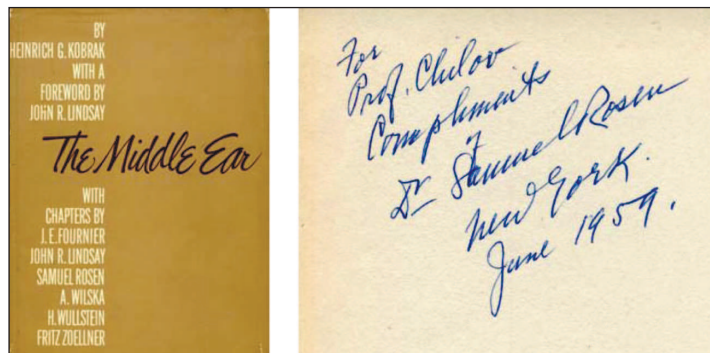 BY
HEINRICH G. KOBRAK
WITH A
FOREWORD BY
JOHN R. LINDSAY
The Middle Ear
WITH
CHAPTERS BY
J. E. FOURNIER
JOHN R. LINDSAY
SAMUEL ROSEN
A. WILSKA
H. WULLSTEIN
FRITZ ZOELLNER
For
Prof. Chilov
Compliments
of
Dr Samuel Rosen
New York.
June 1959.